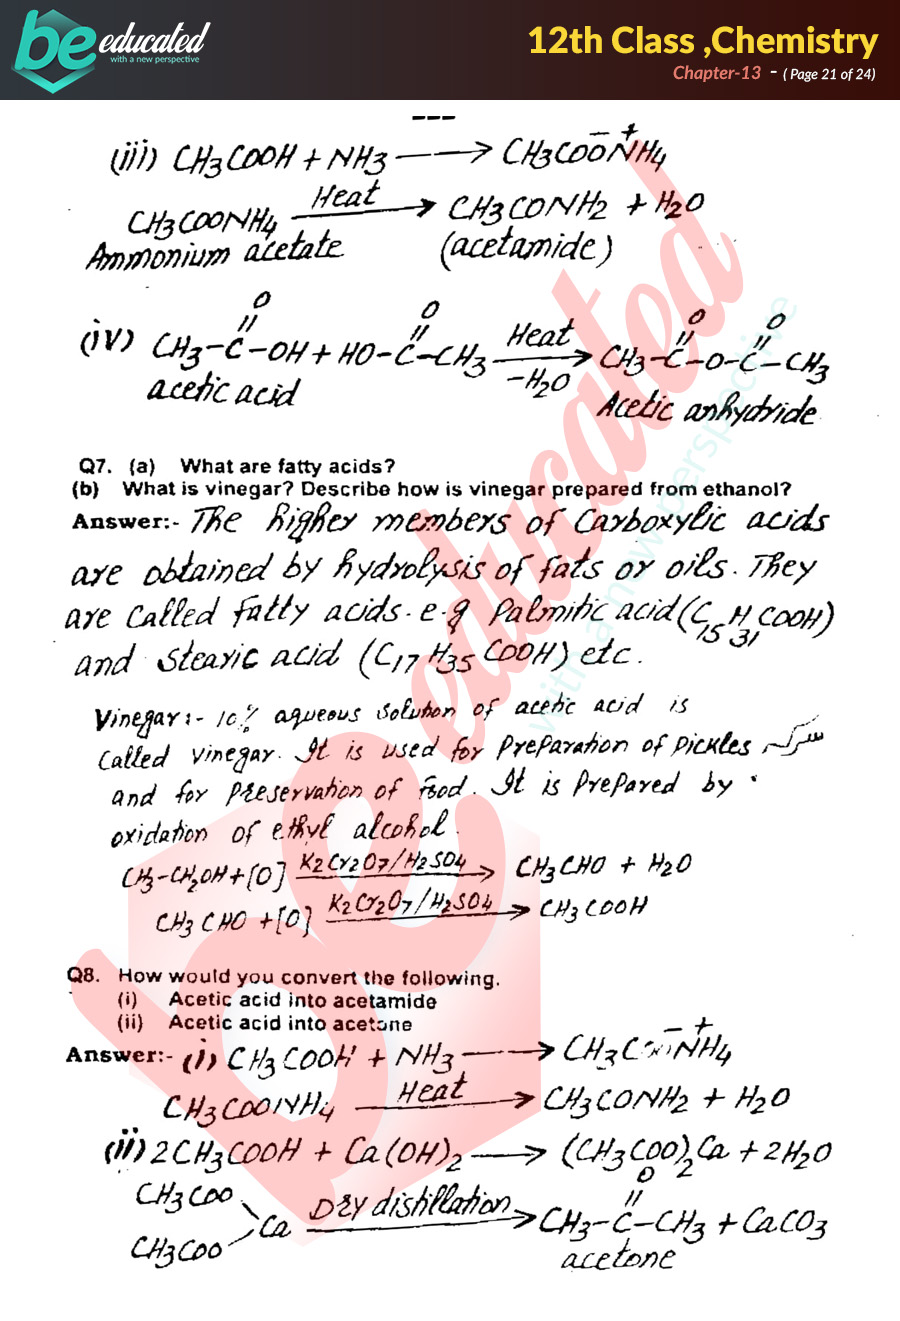 be educated
with a new perspective
12th Class ,Chemistry
Chapter-13 - ( Page 21 of 24)
---
(iii) CH3COOH + NH3 ⟶ CH3COO⁻N⁺H4
CH3COONH4 —Heat→ CH3CONH2 + H2O
Ammonium acetate (acetamide)
O O O O
(iv) CH3-C-OH + HO-C-CH3 —Heat→ CH3-C-O-C-CH3
-H2O
acetic acid Acetic anhydride
Q7. (a) What are fatty acids?
(b) What is vinegar? Describe how is vinegar prepared from ethanol?
Answer:- The higher members of Carboxylic acids
are obtained by hydrolysis of fats or oils. They
are called fatty acids. e.g Palmitic acid (C15H31COOH)
and stearic acid (C17H35COOH) etc.
Vinegar:- 10% aqueous solution of acetic acid is
called vinegar. It is used for preparation of pickles سرکہ
and for preservation of food. It is prepared by
oxidation of ethyl alcohol.
CH3-CH2OH + [O] —K2Cr2O7/H2SO4→ CH3CHO + H2O
CH3CHO + [O] —K2Cr2O7/H2SO4→ CH3COOH
Q8. How would you convert the following.
(i) Acetic acid into acetamide
(ii) Acetic acid into acetone
Answer:- (i) CH3COOH + NH3 ⟶ CH3COO⁻N⁺H4
CH3COONH4 —Heat→ CH3CONH2 + H2O
(ii) 2CH3COOH + Ca(OH)2 ⟶ (CH3COO)2Ca + 2H2O
CH3COO O
Ca —Dry distillation→ CH3-C-CH3 + CaCO3
CH3COO acetone
be educated
with a new perspective